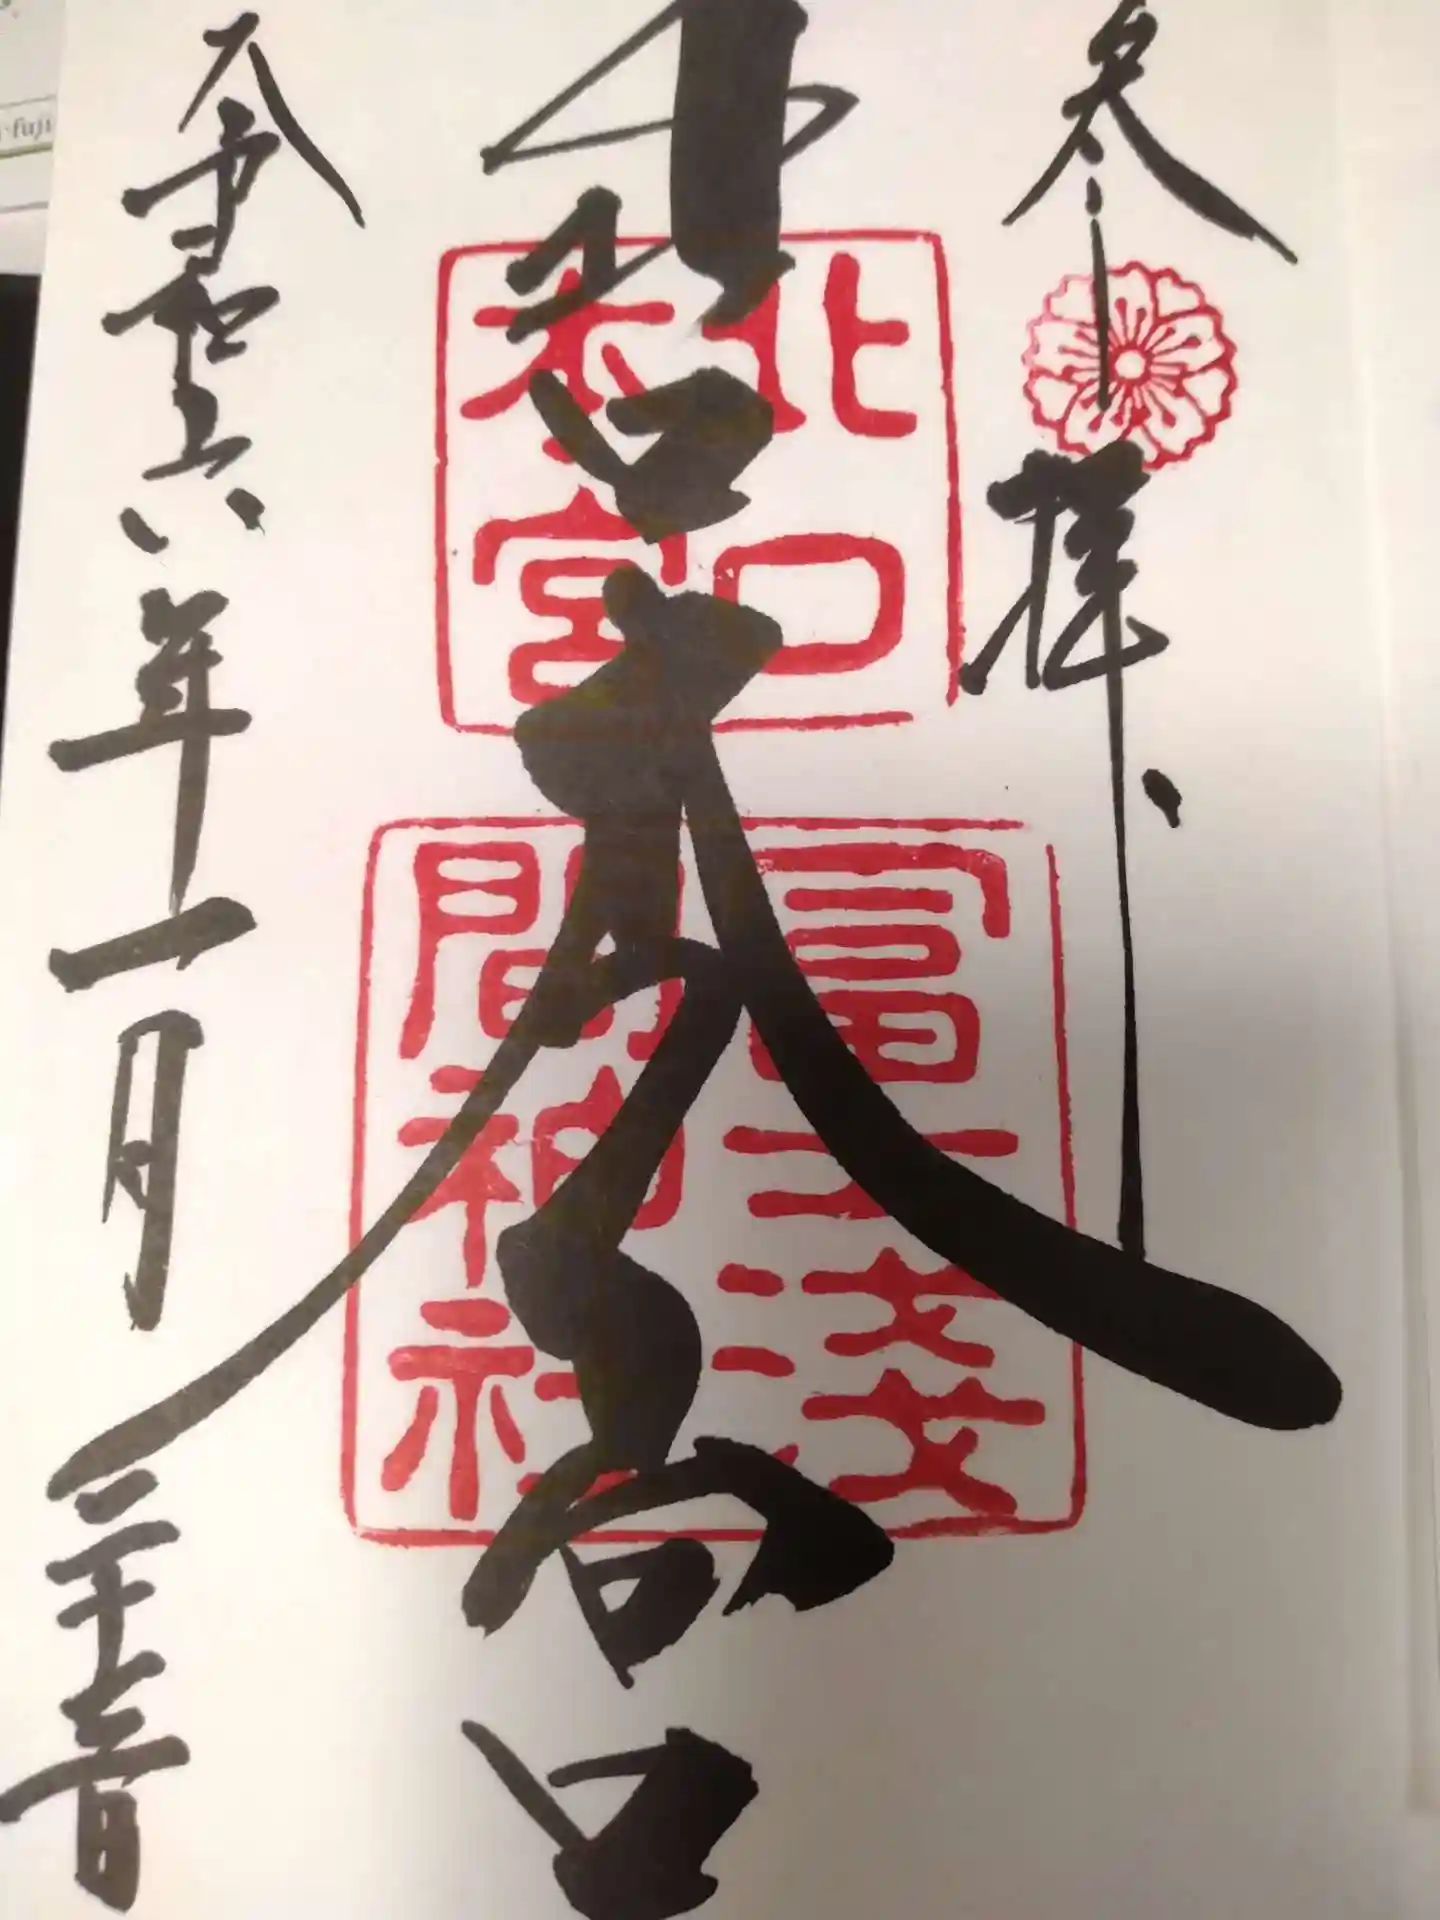 参拝
北口本宮
北口
本宮
冨士淺
間神社
令和六年一月二十三日
fuji